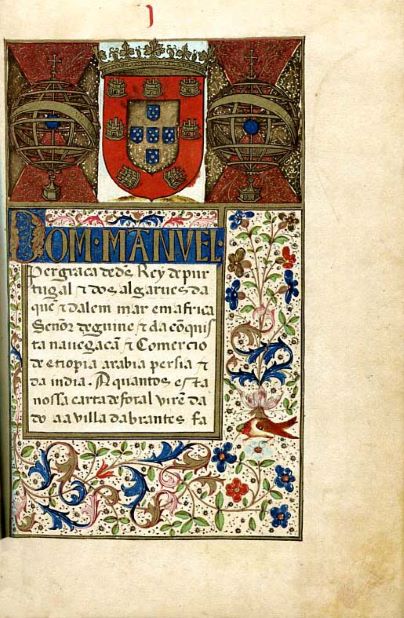 DOM·MANVEL·
Per graca de d's Rey de pur
tugal ⁊ dos algarues da
quē ⁊ dalem mar em africa
Senoz̃ de guine ⁊ da cõquis
ta nauegacam̃ ⁊ Comercio
de etiopia arabia persia ⁊
da india. A quantos esta
nossa carta de foral virē da
do a a villa dabrantes fa